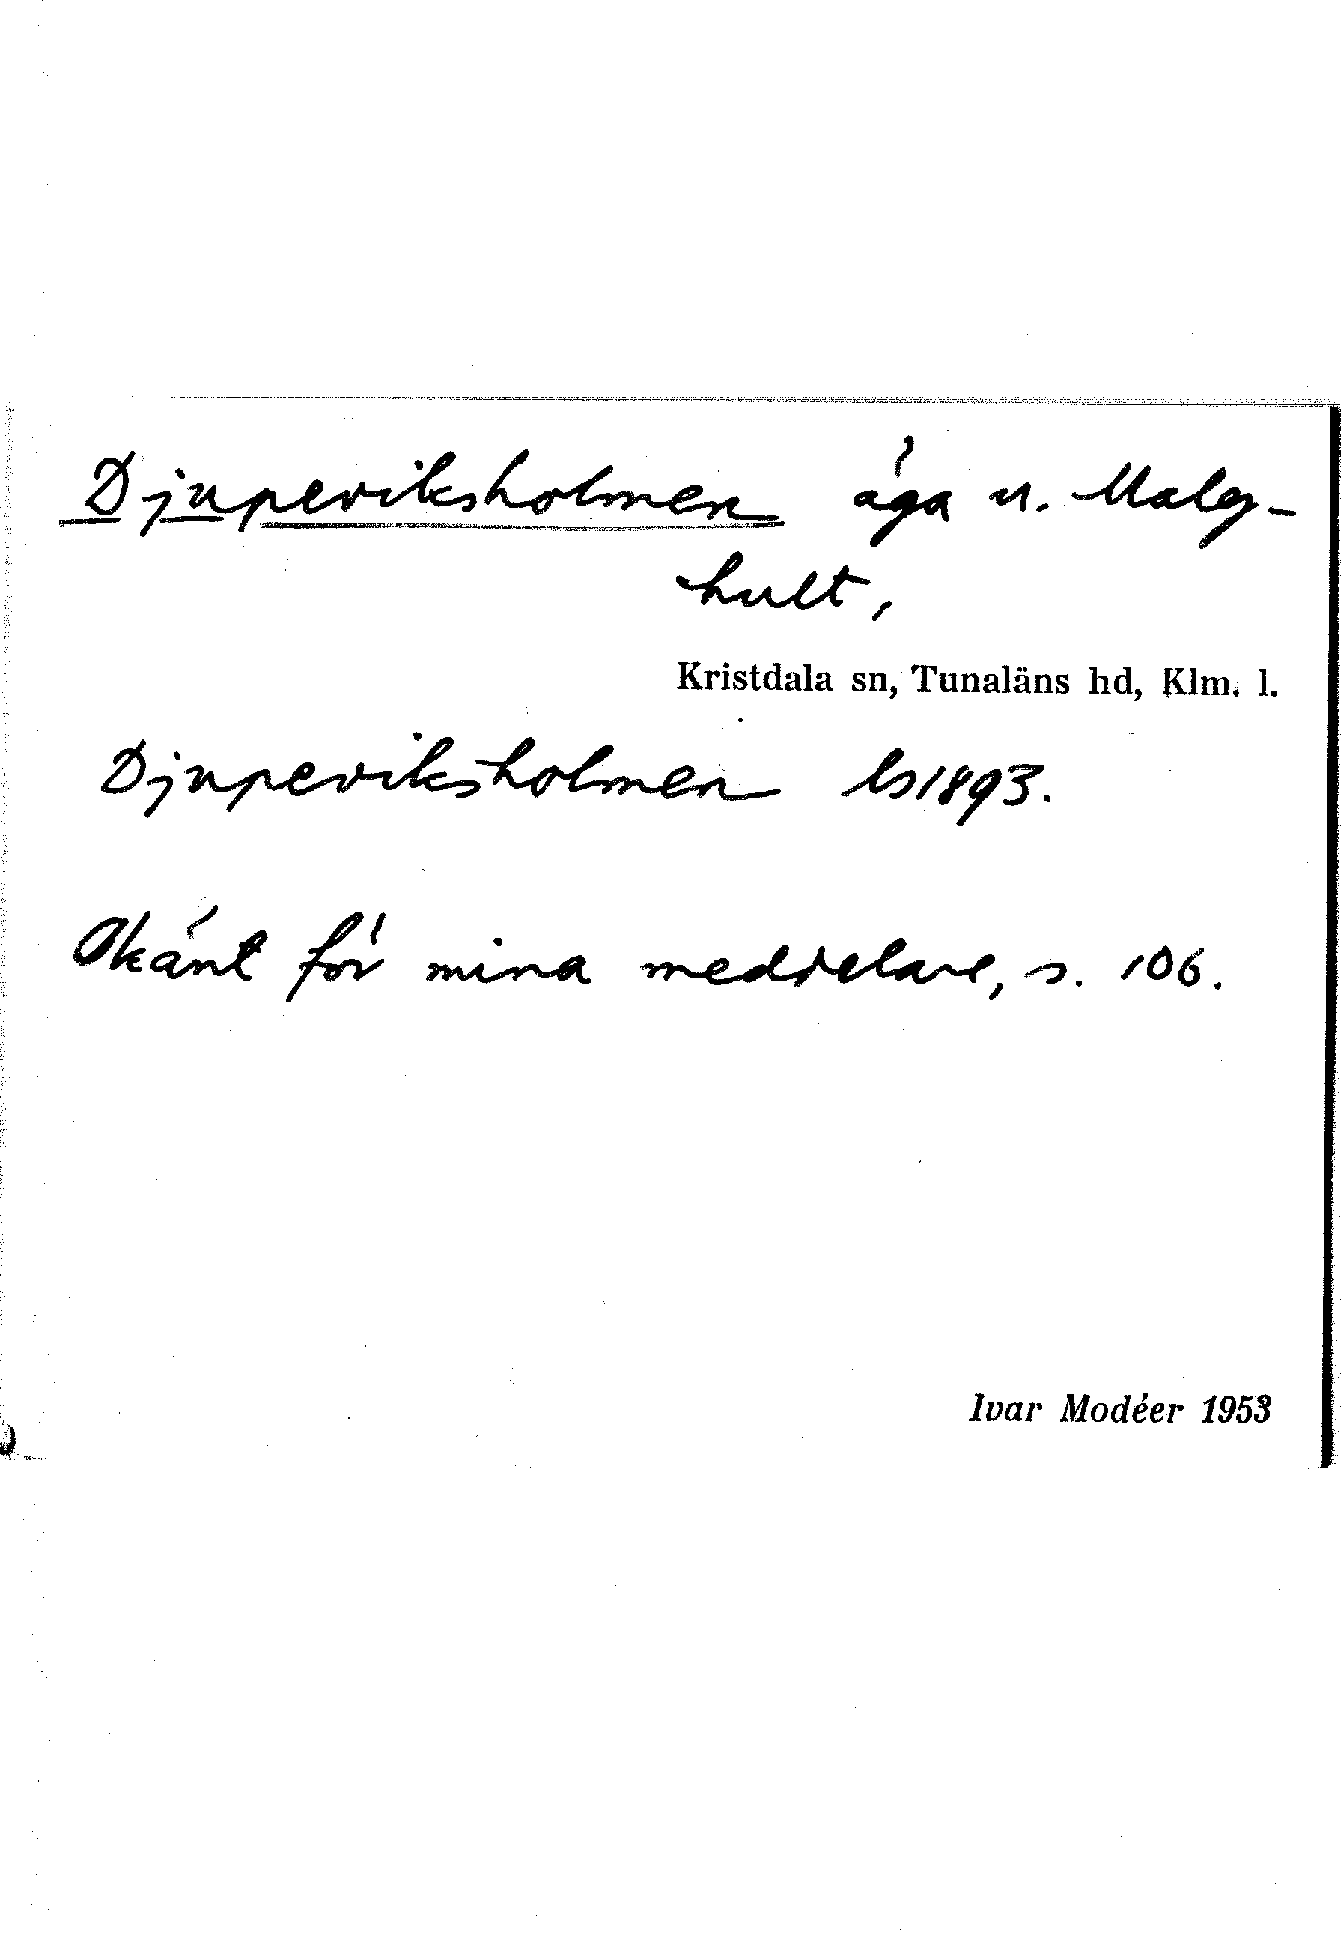 Djupeviksholmen äga u. Malg-
hult,
Kristdala sn, Tunaläns hd, Klm. l.
Djupeviksholmen ls 1893.
Okänt för mina meddelare, s. 106.
Ivar Modéer 1953